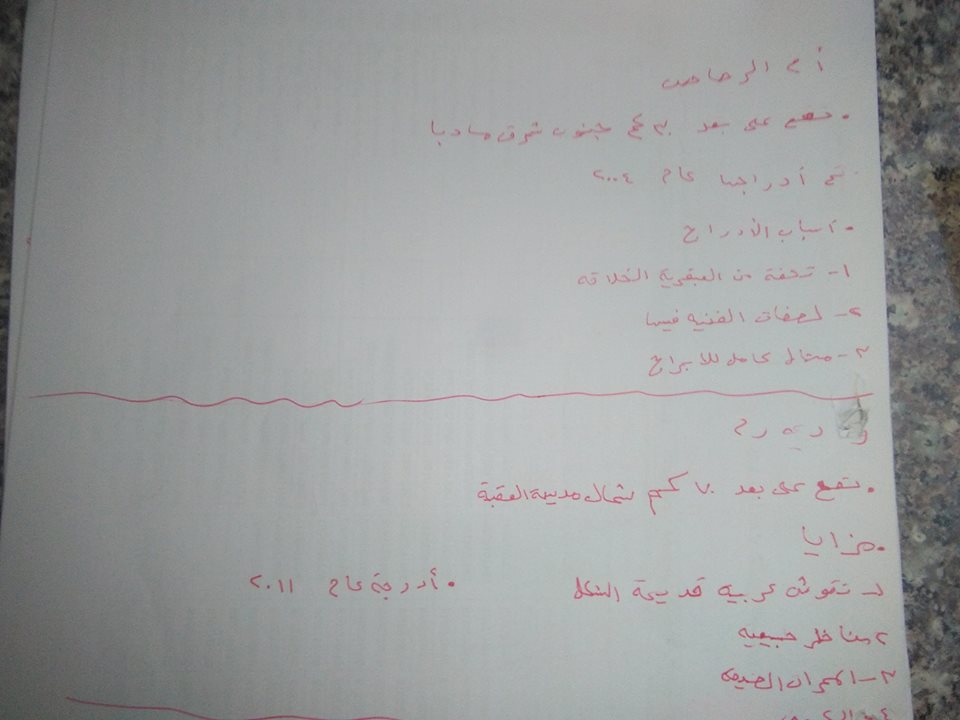 أم الرصاص
• تقع على بعد ٣٠ كم جنوب شرق مادبا
تم أدراجها عام ٢٠٠٤
• اسباب الأدراج
١- تحفة من العبقرية الخلاقه
٢- لصفات الفنيه فيها
٣- مثال كامل للابراج
وادي رم
• تقع على بعد ٧٠ كم شمال مدينة العقبة
• مزايا
١- نقوش عربيه قديمة الشكل
• أدرجة عام ٢٠١١
٢ مناظر طبيعيه
٣- الممرات الضيقه